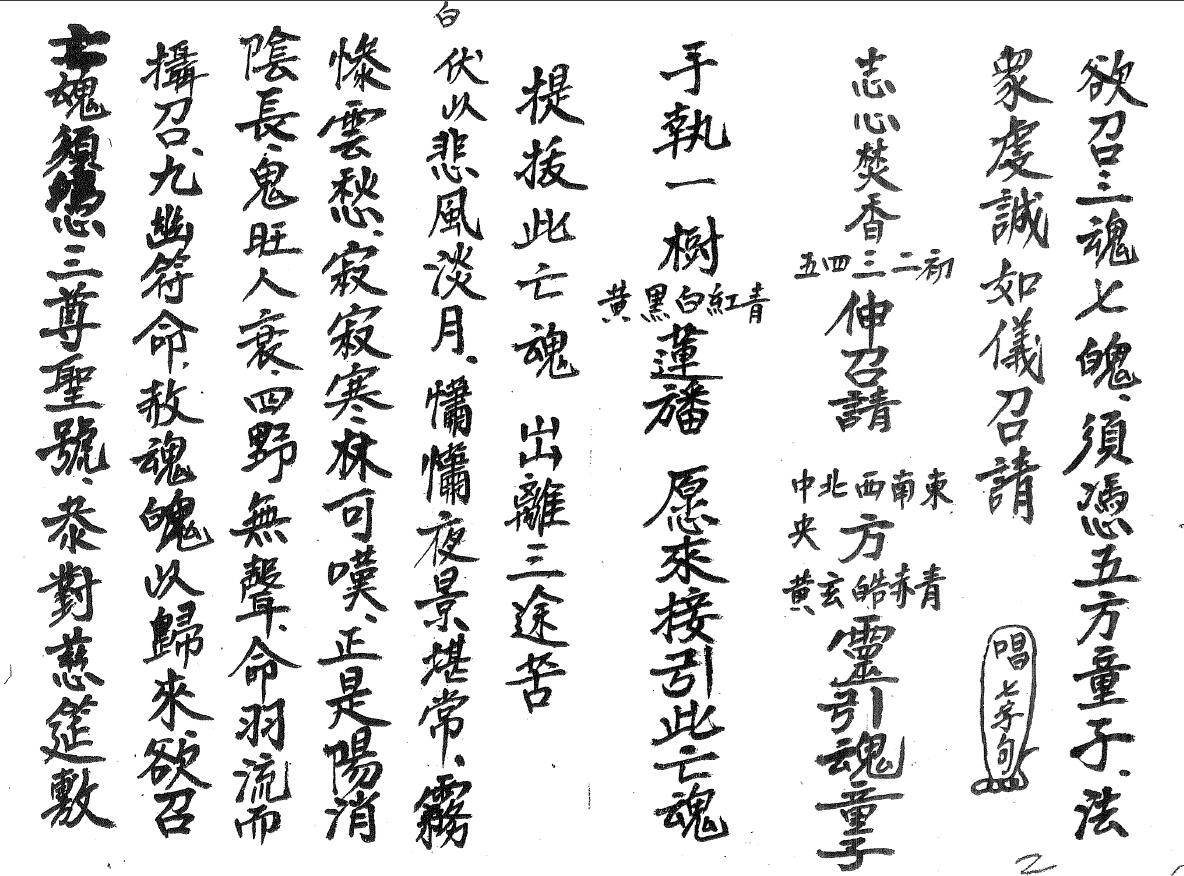 欲召三魂七魄、須憑五方童子、法
衆虔誠如儀召請
唱七字句
志心焚香
初二三四五
伸召請
東南西北中央
方
青赤皓玄黃
靈引魂童子
手執一樹
青紅白黑黃
蓮旛 愿來接引此亡魂
提拔此亡魂 出離三途苦
白
伏以悲風淡月、慵慵夜景堪常、霧
慘雲愁、寂寂寒林可嘆、正是陽消
陰長、鬼旺人衰、四野無聲、命羽流而
攝召、九幽符命、赦魂魄以歸來、欲召
亡魂須憑三尊聖號、忝對慈筵敷
2